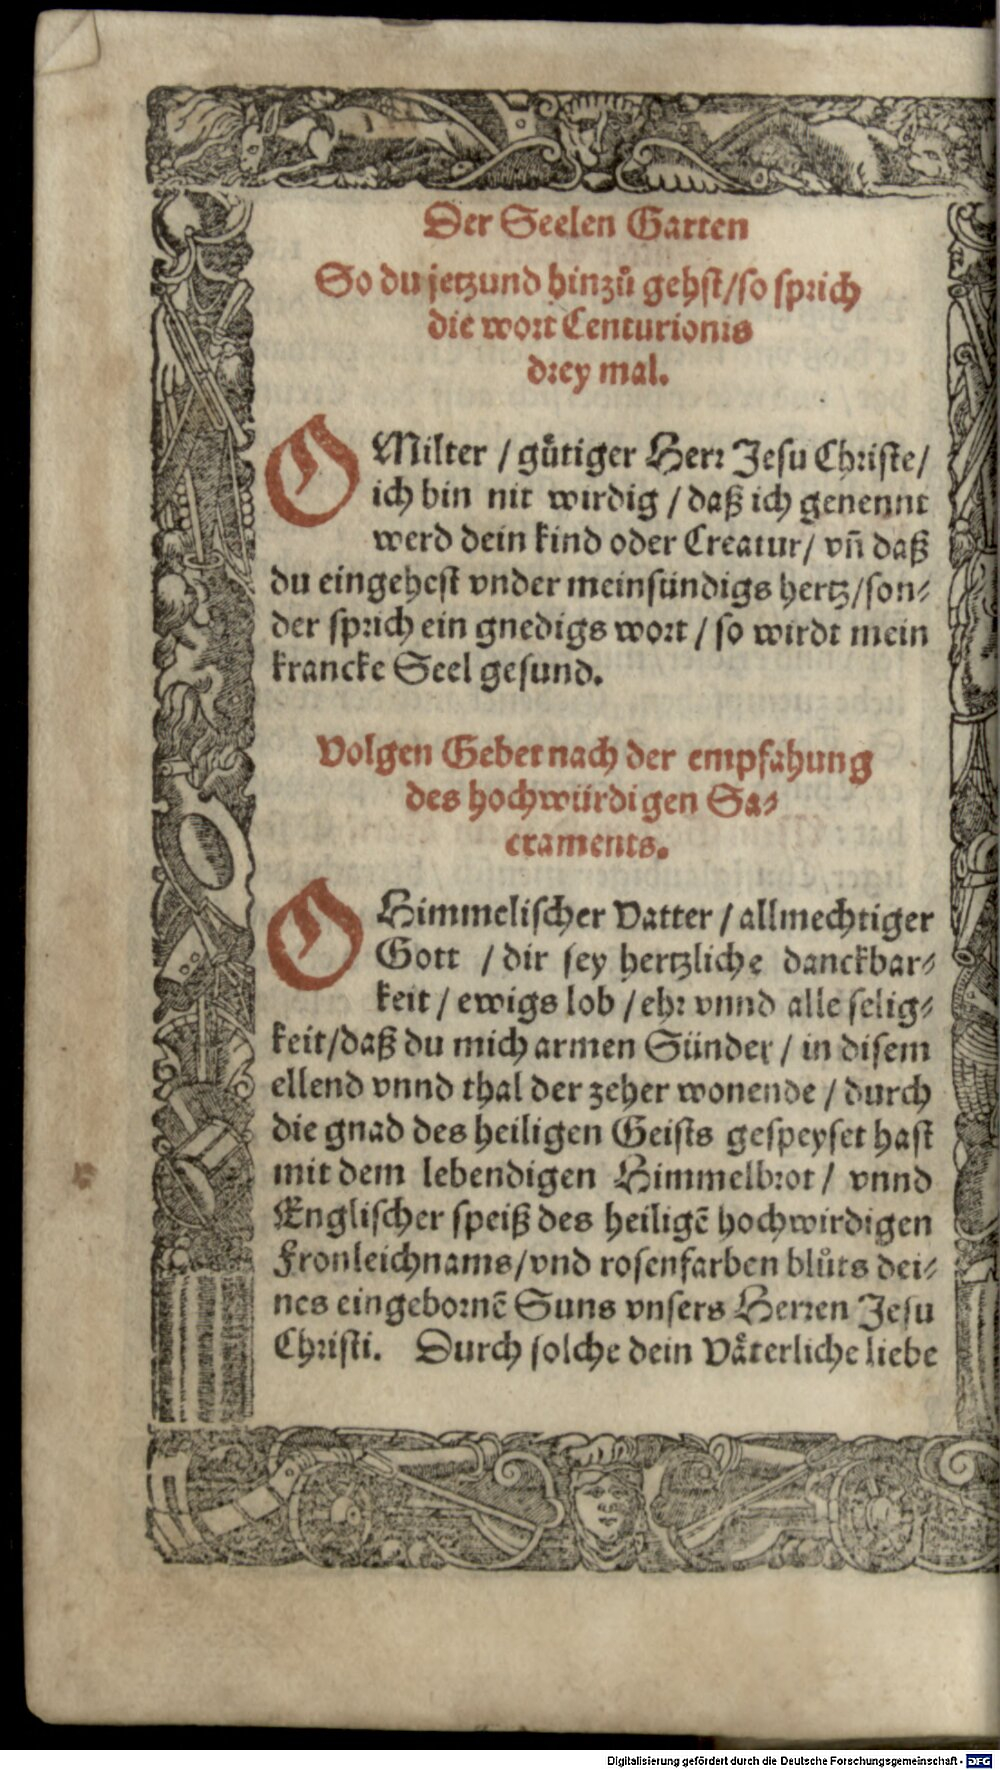 Der Seelen Garten
So du jetzund hinzů gehst/so sprich
die wort Centurionis
drey mal.
O Milter / gůtiger Herr Jesu Christe/
ich bin nit wirdig / daß ich genennt
werd dein kind oder Creatur/ vñ daß
du eingehest vnder mein sündigs hertz/son⸗
der sprich ein gnedigs wort / so wirdt mein
krancke Seel gesund.
Volgen Gebet nach der empfahung
des hochwürdigen Sa⸗
craments.
O Himmelischer Vatter / allmechtiger
Gott / dir sey hertzliche danckbar⸗
keit / ewigs lob / ehr vnnd alle selig⸗
keit/daß du mich armen Sünder / in disem
ellend vnnd thal der zeher wonende / durch
die gnad des heiligen Geists gespeyset hast
mit dem lebendigen Himmelbrot / vnnd
Englischer speiß des heiligē hochwirdigen
Fronleichnams/vnd rosenfarben blůts dei⸗
nes eingebornē Suns vnsers Herren Jesu
Christi. Durch solche dein Vaͤterliche liebe
Digitalisierung gefördert durch die Deutsche Forschungsgemeinschaft - DFG